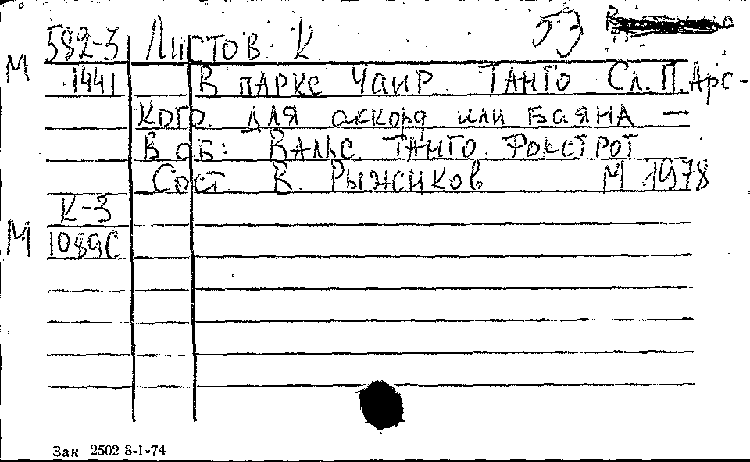 592-3 Листов К 53
М
1441 В парке Чаир. Танго Сл. П. Арс-
кого для аккорд или баяна —
В сб: Вальс. Танго. Фокстрот
Сост В. Рыжиков М 1978
К-3
М 1089С
Зак 2502 8-1-74